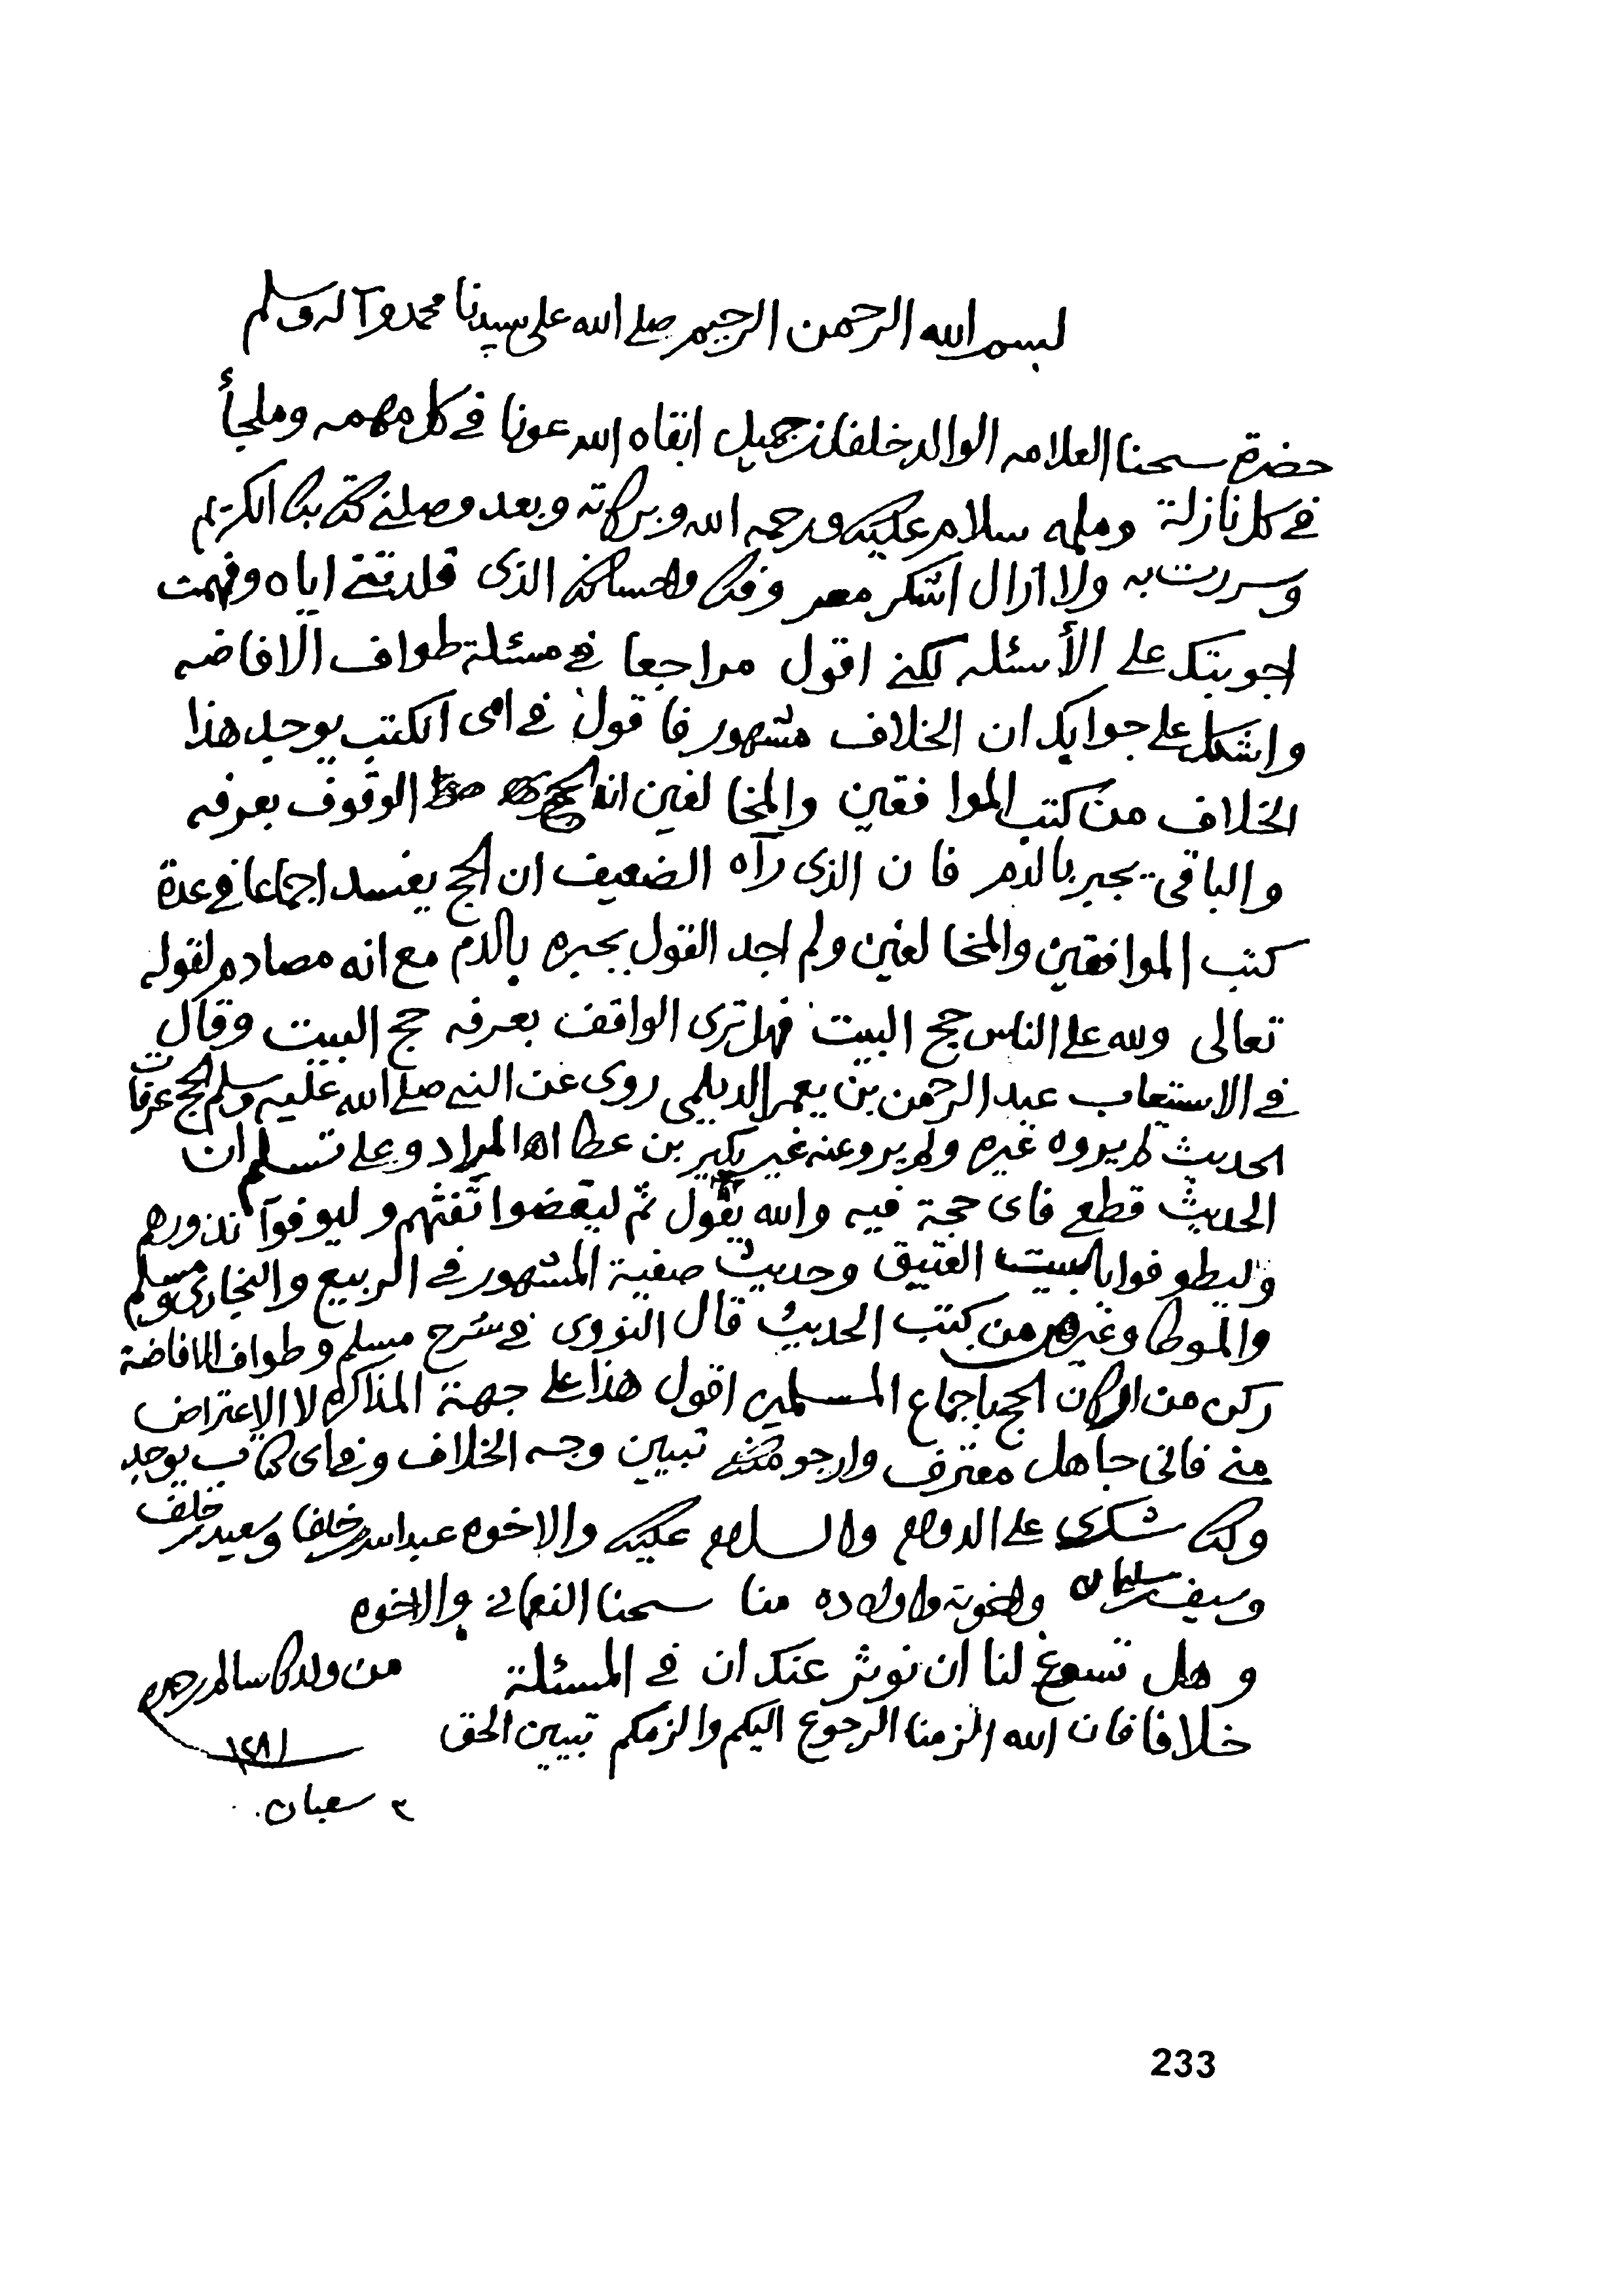 بسم الله الرحمن الرحيم صلى الله على سيدنا محمد وآله وسلم
حضرة شيخنا العلامه الوالد خلفان بن جميل ابقاه الله عونا في كل مهمه وملجأ
في كل نازلة وملمه سلام عليك ورحمه الله وبركاته وبعد وصلني كتابك الكريم
وسررت به ولا ازال اشكر معروفك واحسانك الذى قلدتني اياه وفهمت
اجوبتك على الأسئله لكني اقول مراجعا في مسئلة طواف الافاضه
واشكل على جوابك ان الخلاف مشهور فاقول في اى الكتب يوجد هذا
الخلاف من كتب الموافقين والمخالفين ان الحج الوقوف بعرفه
والباقى يجبر بالدم فان الذى رآه الضعيف ان الحج يفسد اجماعا في عدة
كتب الموافقين والمخالفين ولم اجد القول بجبره بالدم مع انه مصادم لقوله
تعالى ولله على الناس حج البيت فهل ترى الواقف بعرفه حج البيت وقال
في الاستيعاب عبد الرحمن بن يعمر الديلمى روى عن النبي صلى الله عليه وسلم الحج عرفات
الحديث لم يروه غيره ولم يرو عنه غير بكير بن عطا اه المراد وعلى تسليم ان
الحديث قطع فاى حجة فيه والله يقول ثم ليقضوا تفثهم وليوفوا نذورهم
وليطوفوا بالبيت العتيق وحديث صفية المشهور في الربيع والبخارى ومسلم
والموطا وغيرهن من كتب الحديث قال النووى في شرح مسلم وطواف الافاضة
ركن من اركان الحج باجماع المسلمين اقول هذا على جهة المذاكره لا الاعتراض
مني فانى جاهل معترف وارجو منك تبيين وجه الخلاف وفى اى كتاب يوجد
ولك شكرى على الدوام والسلام عليك والاخوه عبدالله بن خلفان وسعيد بن خلف
وسيف بن سليمان واخوته واولاده منا شيخنا النعمانى والاخوه
وهل تسوغ لنا ان نوثر عنك ان في المسئلة
خلافا فان الله الزمنا الرجوع اليكم والزمكم تبيين الحق
من ولدك سالم بن حمد
٣ شعبان
233